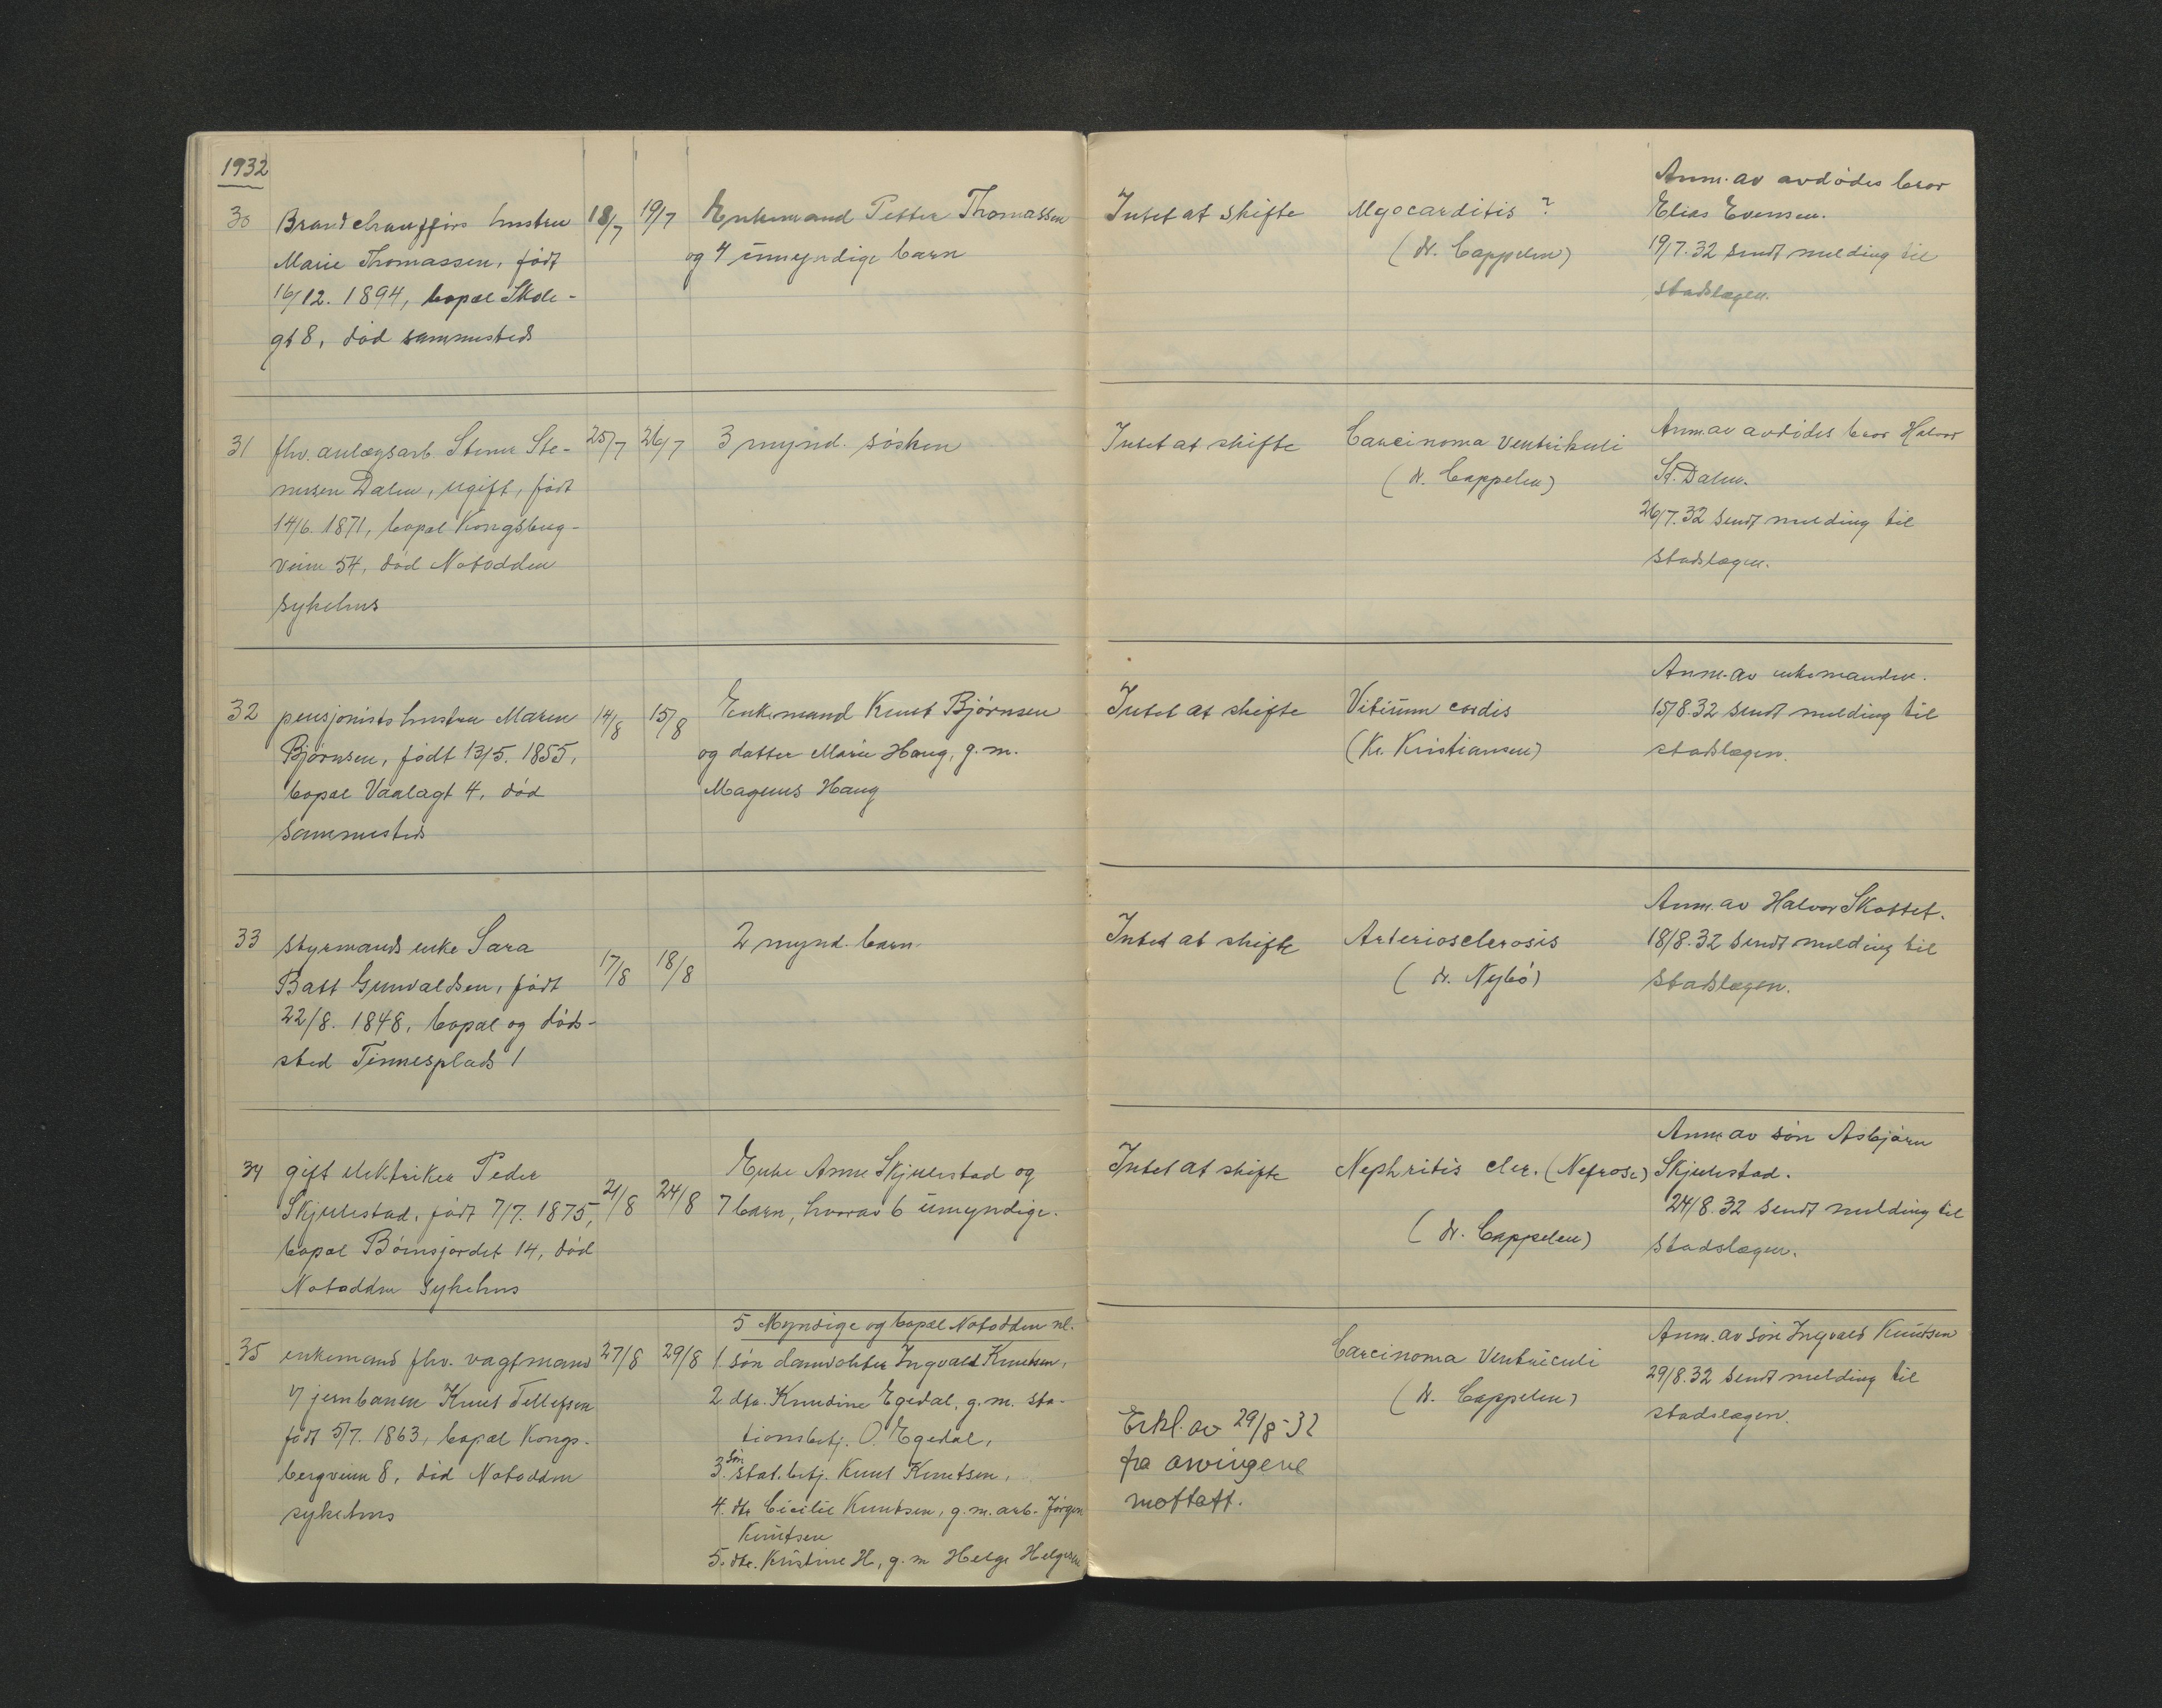 1932
30 Brandchaufførs hustru 18/7 19/7 Enkemand Petter Thomassen Intet at skifte Myocarditis ? Anm. av avdødes bror
Marie Thomassen, født og 4 umyndige barn (dr. Cappelen) Elias Evensen.
16/12. 1894, bopæl Skole- 19/7.32 sendt melding til
gt 8, død sammesteds stadslægen.
31 fhv. anlægsarb. Stener Ste- 25/7 26/7 3 mynd. søsken Intet at skifte Carcinoma Ventrikuli Anm. av avdødes bror Halvor
nersen Dalen, ugift, født (dr. Cappelen) St. Dalen.
14/6. 1871, bopæl Kongsberg- 26/7.32 sendt melding til
veien 54, død Notodden stadslægen.
sykehus
32 pensjonists hustru Maren 14/8 15/8 Enkemand Knut Bjørnsen Intet at skifte Vitium cordis Anm. av enkemanden.
Bjørnsen, født 13/5. 1855, og datter Marie Haug, g.m. (Kr. Kristiansen) 15/8.32 sendt melding til
bopæl Vaalagt 4, død Magnus Haug stadslægen.
sammesteds
33 styrmands enke Sara 17/8 18/8 2 mynd. barn. Intet at skifte Arteriosclerosis Anm. av Halvor Skottet.
Batt Gunvaldsen, født (dr. Nybø) 18/8.32 sendt melding til
22/8. 1848, bopæl og døds- stadslægen.
sted Tinnesplads 1
34 gift elektriker Peder 21/8 24/8 Enke Anne Skjulestad og Intet at skifte Nephritis chr. (Nefrose) Anm. av søn Asbjørn
Skjulestad, født 7/7. 1875, 7 barn, hvorav 6 umyndige. (dr. Cappelen) Skjulestad.
bopæl Bømsjordet 14, død 24/8.32 sendt melding til
Notodden sykehus stadslægen.
5 Myndige og bopæl Notodden nl.
35 enkemand fhv. vagtmand 27/8 29/8 1 søn Ingvald Knutsen, Carcinoma Ventriculi Anm. av søn Ingvald Knutsen
v/ jernbanen Knut Tellefsen 2 dtr. Knudine Egedal, g.m. sta- (dr. Cappelen) 29/8.32 sendt melding til
født 5/7. 1863, bopæl Kongs- tionsbetj. O. Egedal, Erkl. av 29/8-32 stadslægen.
bergveien 8, død Notodden 3. søn stat.betj. Knut Knutsen, fra arvingene
sykehus 4. dtr Cicilie Knutsen, g.m. arb. Jørgen mottatt.
Knutsen
5. dtr. Kristine H, g.m Helge Helgesen